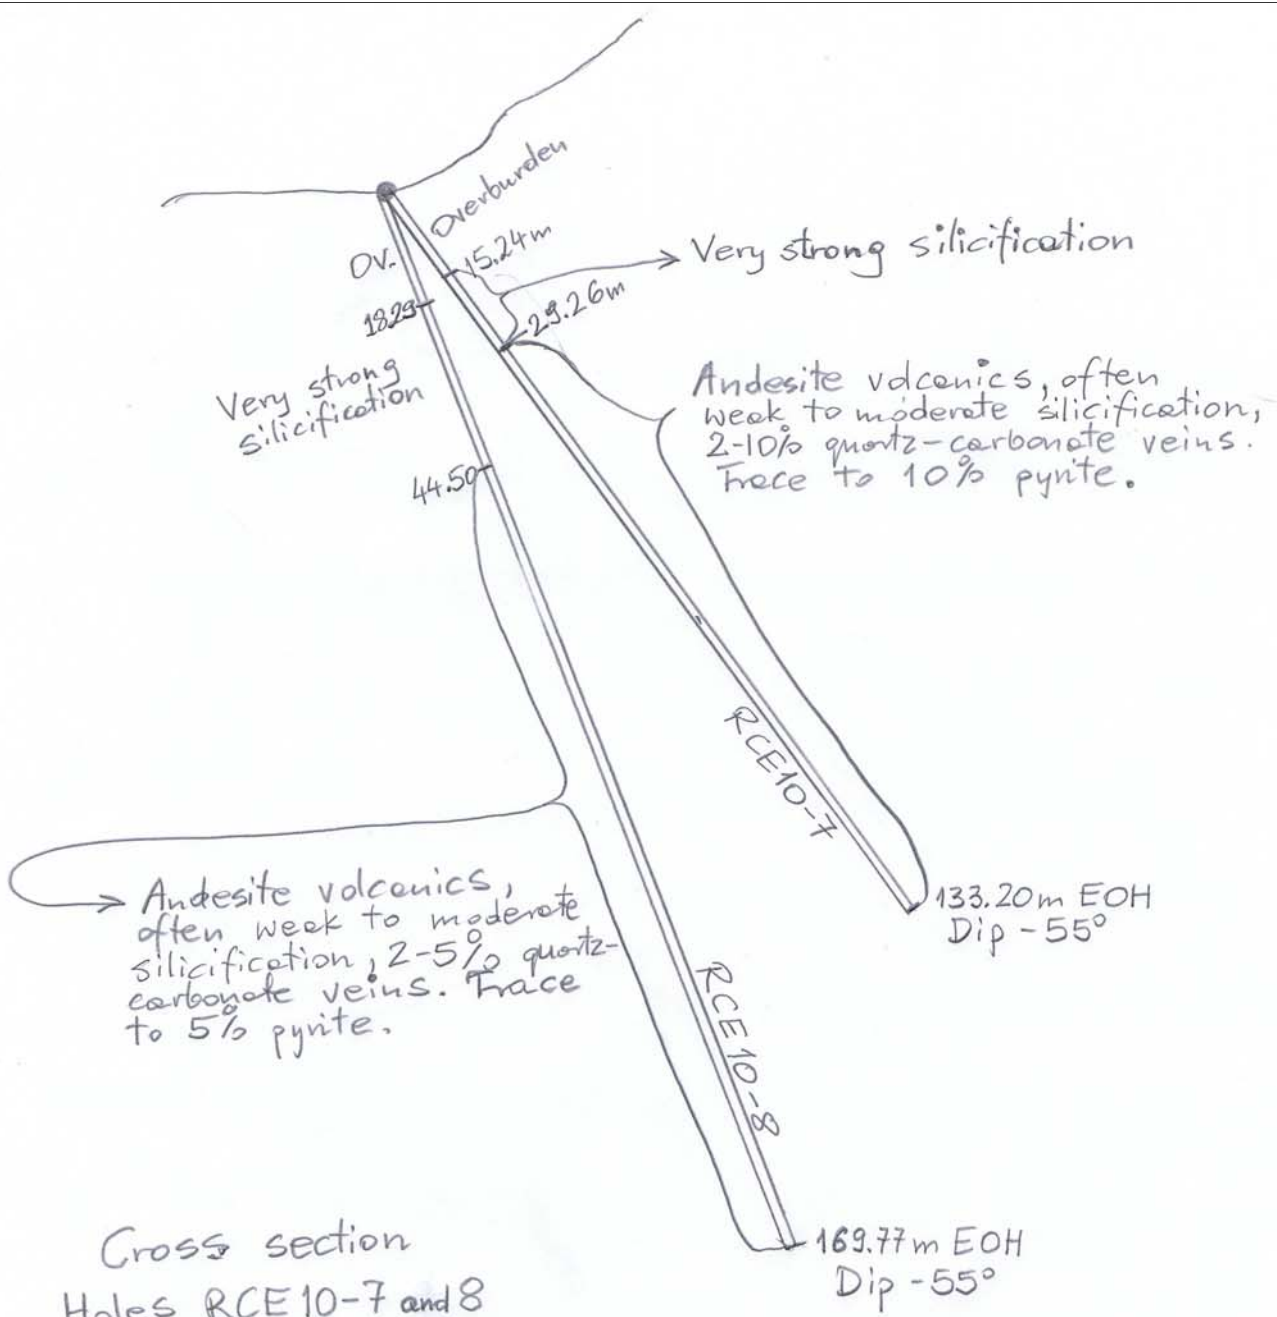 Overburden
15.24m
Very strong silicification
OV.
18.29
29.26m
Very strong
silicification
Andesite volcanics, often
weak to moderate silicification,
2-10% quartz-carbonate veins.
Trace to 10% pyrite.
44.50
RCE10-7
133.20m EOH
Dip -55°
Andesite volcanics,
often weak to moderate
silicification, 2-5% quartz-
carbonate veins. Trace
to 5% pyrite.
RCE10-8
169.77m EOH
Dip -55°
Cross section
Holes RCE10-7 and 8